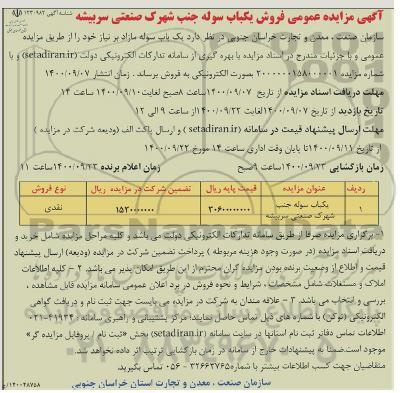 شناسه آگهی ۱۲۳۰۹۸۲
آگهی مزایده عمومی فروش یکباب سوله جنب شهرک صنعتی سربیشه
سازمان صنعت ، معدن و تجارت خراسان جنوبی در نظر دارد یک باب سوله مازاد بر نیاز خود را از طریق مزایده
عمومی و با جزئیات مندرج در اسناد مزایده با بهره گیری از سامانه تدارکات الکترونیکی دولت (setadiran.ir) و با
شماره مزایده بصورت الکترونیکی به فروش برساند . زمان انتشار ۱۴۰۰/۰۹/۰۷
مهلت دریافت اسناد مزایده از تاریخ ۱۴۰۰/۰۹/۰۷ساعت ۸صبح لغایت۱۴۰۰/۰۹/۱۰ ساعت ۱۴
تاریخ بازدید از تاریخ ۱۴۰۰/۰۹/۰۷لغایت ۱۴۰۰/۰۹/۲۲از ساعت ۹ الی ۱۲
مهلت ارسال پیشنهاد قیمت در سامانه (setadiran.ir) و ارسال پاکت الف (ودیعه شرکت در مزایده )
از تاریخ ۱۴۰۰/۰۹/۱۱تا پایان وقت اداری ساعت ۱۴ مورخ ۱۴۰۰/۰۹/۲۲
زمان بازگشایی ۱۴۰۰/۰۹/۲۳ساعت ۹صبح زمان اعلام برنده ۱۴۰۰/۰۹/۲۳ ساعت ۱۱
ردیف عنوان مزایده قیمت پایه ریال تضمین شرکت در مزایده ریال نوع فروش
۱ یکباب سوله جنب شهرک صنعتی سربیشه نقدی
۱- برگزاری مزایده صرفا از طریق سامانه تدارکات الکترونیکی دولت می باشد و کلیه مراحل مزایده شامل خرید و
دریافت اسناد مزایده (در صورت وجود هزینه مربوطه ) پرداخت تضمین شرکت در مزایده (ودیعه) ارسال پیشنهاد
قیمت و اطلاع از وضعیت برنده بودن مزایده گران محترم از این طریق امکان پذیر می باشد. ۲ - کلیه اطلاعات
املاک و مستغلات شامل مشخصات ، شرایط و نحوه فروش در برد اعلان عمومی سامانه مزایده قابل مشاهده ،
بررسی و انتخاب می باشد. ۳ - علاقه مندان به شرکت در مزایده می بایست جهت ثبت نام و دریافت گواهی
الکترونیکی (توکن) با شماره های ذیل تماس حاصل نمایند: مرکز پشتیبانی و راهبری سامانه: ۴۱۹۳۴-۰۲۱
اطلاعات تماس دفاتر ثبت نام استانها در سایت سامانه (setadiran.ir) بخش «ثبت نام / پروفایل مزایده گر»
موجود است.ضمنا به پیشنهادات خارج از سامانه در زمان بازگشایی ترتیب اثر داده نخواهد شد.
متقاضیان جهت کسب اطلاعات بیشتر با شماره ۳۲۶۶۲۷۶۵ - ۰۵۶ تماس بگیرید.
سازمان صنعت ، معدن و تجارت استان خراسان جنوبی